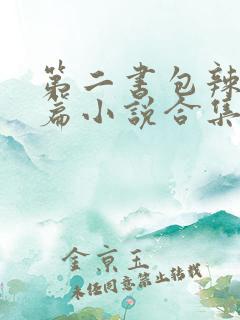 第二书包辣
篇小说合集
金京玉
未经同意禁止转载